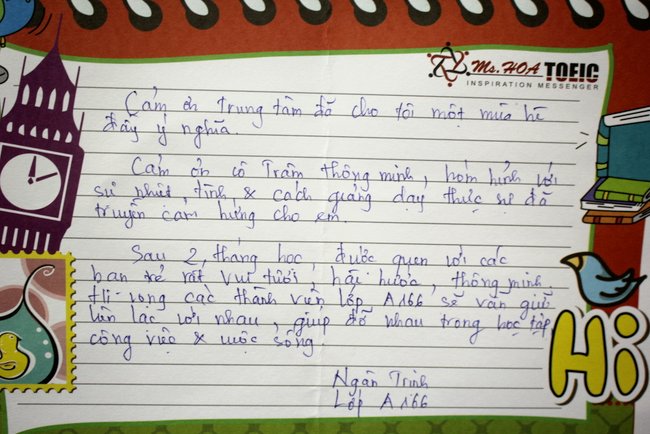 Ms. HOA TOEIC
INSPIRATION MESSENGER
Cảm ơn Trung tâm đã cho tôi một mùa hè
đầy ý nghĩa.
Cảm ơn cô Trâm thông minh, hóm hỉnh với
sự nhiệt tình & cách giảng dạy thực sự đã
truyền cảm hứng cho em.
Sau 2 tháng học, được quen với các
bạn rẻ rất vui tươi, hài hước, thông minh.
Hi vọng các thành viên lớp A166 sẽ vẫn giữ
liên lạc với nhau, giúp đỡ nhau trong học tập
công việc & cuộc sống.
Ngân Trinh
Lớp A166
Hi